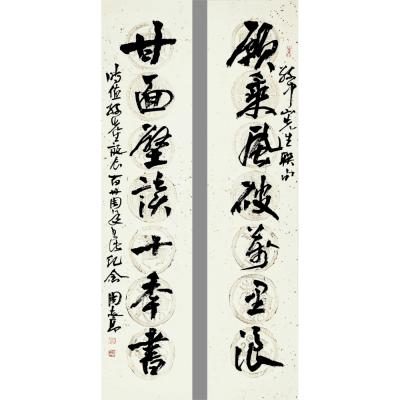 願乘風破萬里浪
孫中山先生聯句
甘面壁讀十年書
時值孫先生誕辰百廿周年書此紀念